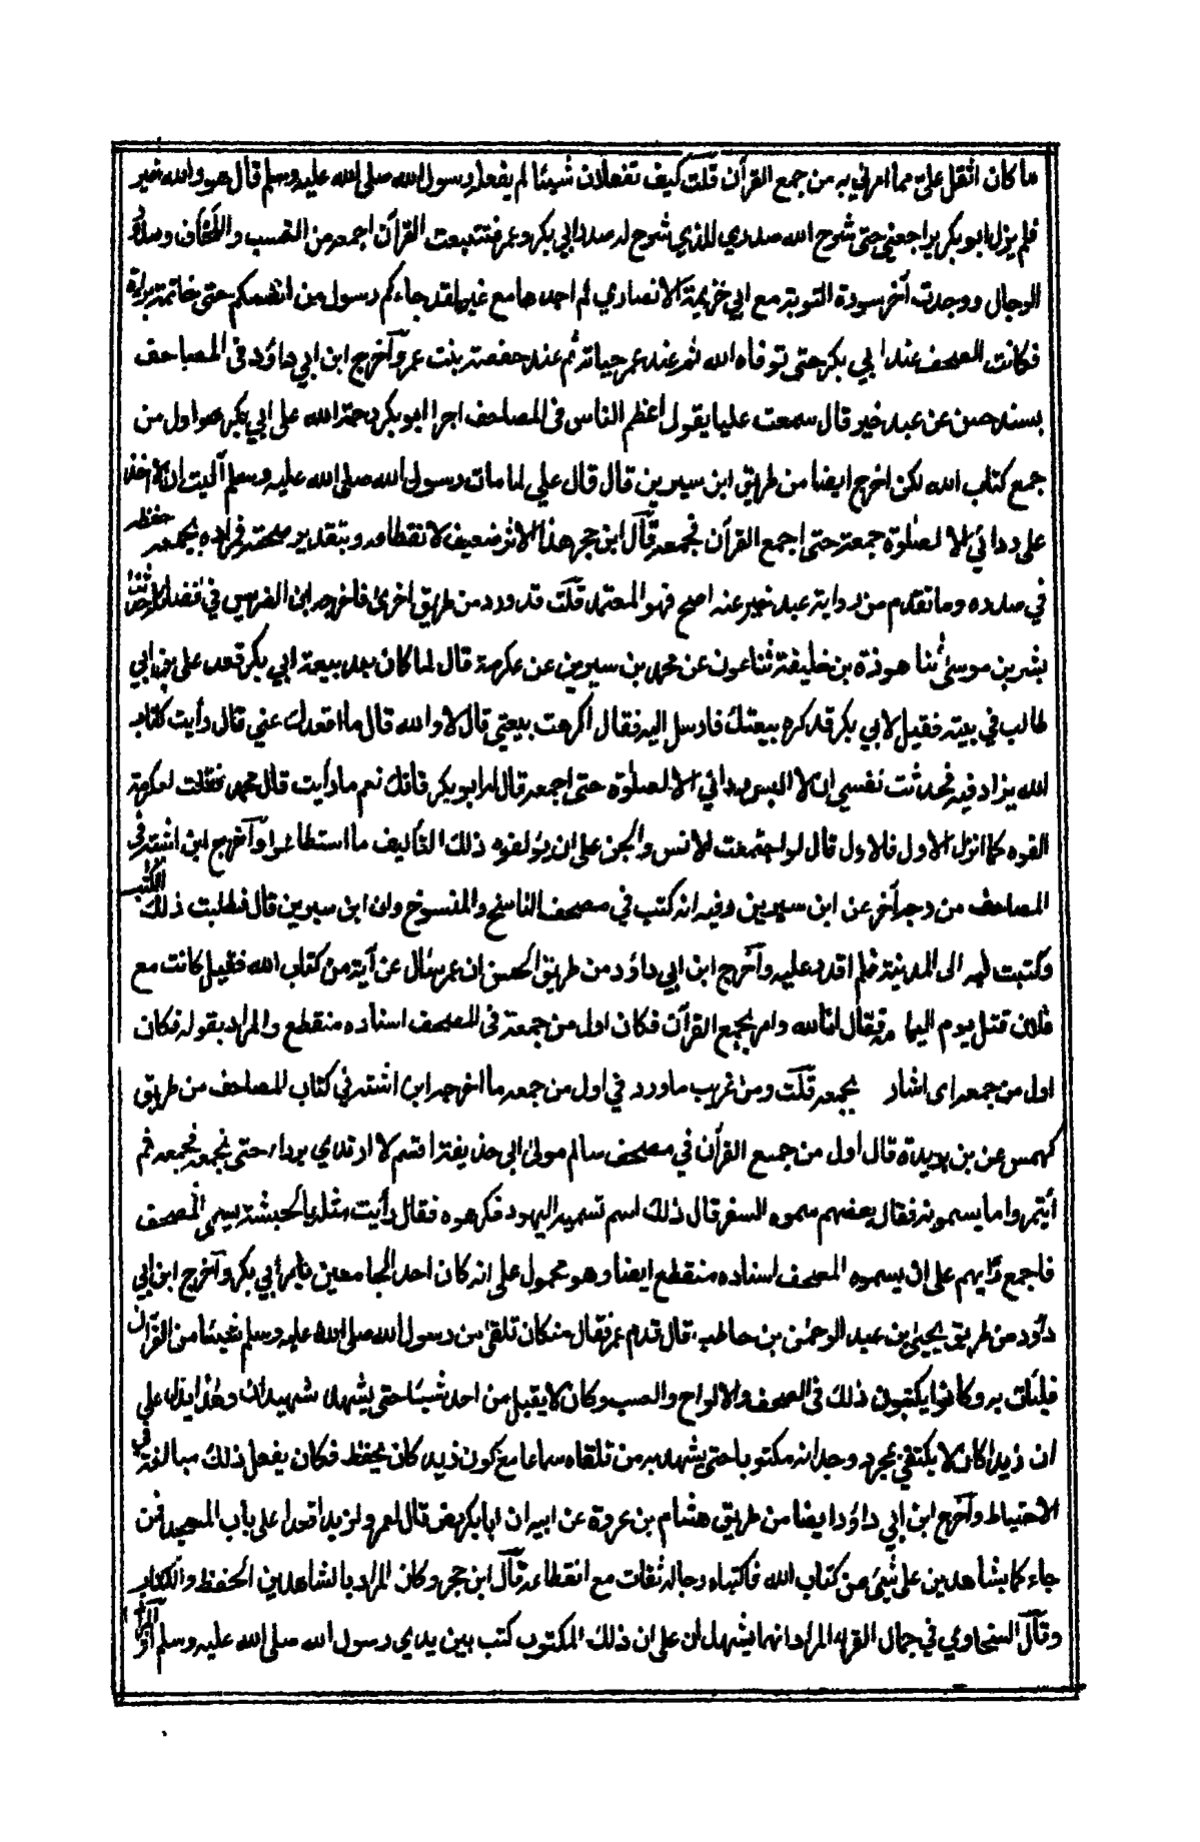 ما كان أثقل علي مما امرني به من جمع القرآن قلت كيف تفعلان شيئا لم يفعله رسول الله صلى الله عليه وسلم قال هو والله خير
فلم يزل ابو بكر يراجعني حتى شرح الله صدري للذي شرح له صدر ابي بكر وعمر فتتبعت القرآن اجمعه من العسب واللخاف وصدور
الرجال ووجدت آخر سورة التوبة مع ابي خزيمة الانصاري لم اجدها مع غيره لقد جاءكم رسول من انفسكم حتى خاتمة براءة
فكانت الصحف عند ابي بكر حتى توفاه الله ثم عند عمر حياته ثم عند حفصة بنت عمر وآخرج ابن ابي داؤد فى المصاحف
بسند حسن عن عبد خير قال سمعت عليا يقول اعظم الناس فى المصاحف اجرا ابو بكر رحمة الله على ابي بكر هو اول من
جمع كتاب الله لكن اخرج ايضا من طريق ابن سيرين قال قال علي لما مات رسول الله صلى الله عليه وسلم آليت ان لا آخذ
على ردائي الا لصلوة جمعة حتى اجمع القرآن فجمعه قال ابن حجر هذا الاثر ضعيف لانقطاعه وبتقدير صحته فمراده بجمعه حفظه
في صدره وما تقدم من رواية عبد خير عنه اصح فهو المعتمد قلت قد ورد من طريق اخرى فاخرجه ابن الضريس في فضائله حدثنا
بشر بن موسى ثنا هوذة بن خليفة ثنا عون عن محمد بن سيرين عن عكرمة قال لما كان بعد بيعة ابي بكر قعد علي بن ابي
طالب في بيته فقيل لابي بكر قد كره بيعتك فارسل اليه فقال اكرهت بيعتي قال لا والله قال ما اقعدك عني قال رأيت كتاب
الله يزاد فيه فحدثت نفسي ان لا البس ردائي الا لصلوة حتى اجمعه قال له ابو بكر فانك نعم ما رأيت قال محمد فقلت لعكرمة
الفوه كما انزل الاول فالاول قال لو اجتمعت الانس والجن على ان يؤلفوه ذلك التأليف ما استطاعوا وآخرج ابن اشته فى
المصاحف من وجه آخر عن ابن سيرين وفيه انه كتب في مصحفه الناسخ والمنسوخ وان ابن سيرين قال فطلبت ذلك الكتب
وكتبت فيه الى المدينة فلم اقدر عليه وآخرج ابن ابي داؤد من طريق الحسن ان عمر سأل عن آية من كتاب الله فقيل كانت مع
فلان قتل يوم اليمامة فقال انا لله وامر بجمع القرآن فكان اول من جمعه فى المصحف اسناده منقطع والمراد بقوله فكان
اول من جمعه اى اشار بجمعه قلت ومن غريب ما ورد في اول من جمعه ما اخرجه ابن اشته في كتاب المصاحف من طريق
كهمس عن بن بريدة قال اول من جمع القرآن في مصحف سالم مولى ابى حذيفة اقسم لا ارتدي برداء حتى نجمعه فجمعه ثم
أيتمروا ما يسمونه فقال بعضهم سموه السفر قال ذلك اسم تسميه اليهود فكرهوه فقال رأيت مثله بالحبشة يسمى المصحف
فاجمع رأيهم على ان يسموه المصحف اسناده منقطع ايضا وهو محمول على انه كان احد الجامعين بأمر أبي بكر وآخرج ابن ابي
داؤد من طريق يحيى بن عبد الرحمن بن حاطب قال قدم عمر فقال من كان تلقى من رسول الله صلى الله عليه وسلم شيئا من القرآن
فليأت به وكانوا يكتبون ذلك فى الصحف والالواح والعسب وكان لا يقبل من احد شيئا حتى يشهد شهيدان وهذا يدل على
ان زيدا كان لا يكتفي بمجرد وجدانه مكتوبا حتى يشهد به من تلقاه سماعا مع كون زيد كان يحفظ فكان يفعل ذلك مبالغة في
الاحتياط وآخرج ابن ابي داؤد ايضا من طريق هشام بن عروة عن ابيه ان ابا بكر رض قال لعمر ولزيد اقعدا على باب المسجد فمن
جاءكما بشاهدين على شئ من كتاب الله فاكتباه رجاله ثقات مع انقطاعه قال ابن حجر وكان المراد بالشاهدين الحفظ والكتاب
وقال السخاوي في جمال القراء المراد انهما يشهدان على ان ذلك المكتوب كتب بين يدي رسول الله صلى الله عليه وسلم او